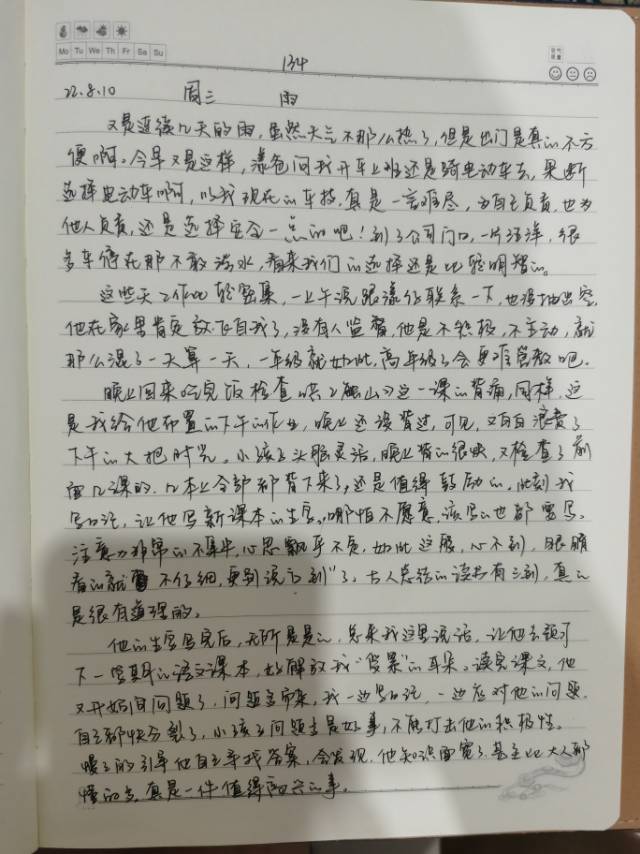 Mo Tu We Th Fr Sa Su
134
22.8.10 周三 雨
又是连续几天的雨,虽然天气不那么热了,但是出门是真的不方
便啊。今早又是这样,爸问我开车上班还是骑电动车去,果断
选择电动车啊,以我现在的车技,真是一言难尽,为自己负责,也为
他人负责,还是选择安全一点的吧!到了公司门口,一片汪洋,很
多车停在那不敢涉水,看来我们的选择还是比较明智的。
这些天工作比较密集,一上午说跟联系一下,也没抽出空,
他在家里肯定放飞自我了,没有人监督,他是不积极,不主动,就
那么混了一天算一天,一年级就如此,高年级了会更难管教吧。
晚上回来吃完饭检查《山》这一课的背诵,同样,这
是我给他布置的下午的作业,晚上还没背过,可见,又白白浪费了
下午的大把时光。小孩子头脑灵活,晚上背的很快,又检查了前
面几课的,基本上全部都背下来了,还是值得鼓励的,此刻我
写日记,让他写新课本的生字,哪怕不愿意,该写的也都要写。
注意力非常的不集中,心思飘乎不定,如此这般,心不到,眼睛
看的就不仔细,更别说“口到”了,古人总结的读书有三到,真的
是很有道理的。
他的生字写完后,无所是是的,总来我这里说话,让他去预习
下一学期的语文课本,好解放我“受累”的耳朵。读完课文,他
又开始问问题了,问题多多来,我一边写日记,一边应对他的问题,
自己都快分裂了,小孩子问题多是好事,不能打击他的积极性。
慢慢的引导他自己寻找答案,会发现,他知识面宽了,甚至比大人都
懂的多,真是一件值得高兴的事。